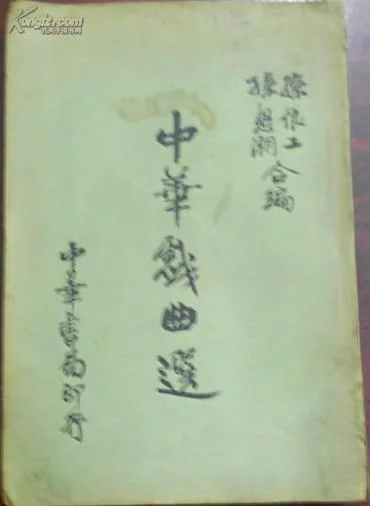 Kongfz.com
孔夫子旧书网
孫俍工
孫怒潮
合編
中華戲曲選
中華書局印行